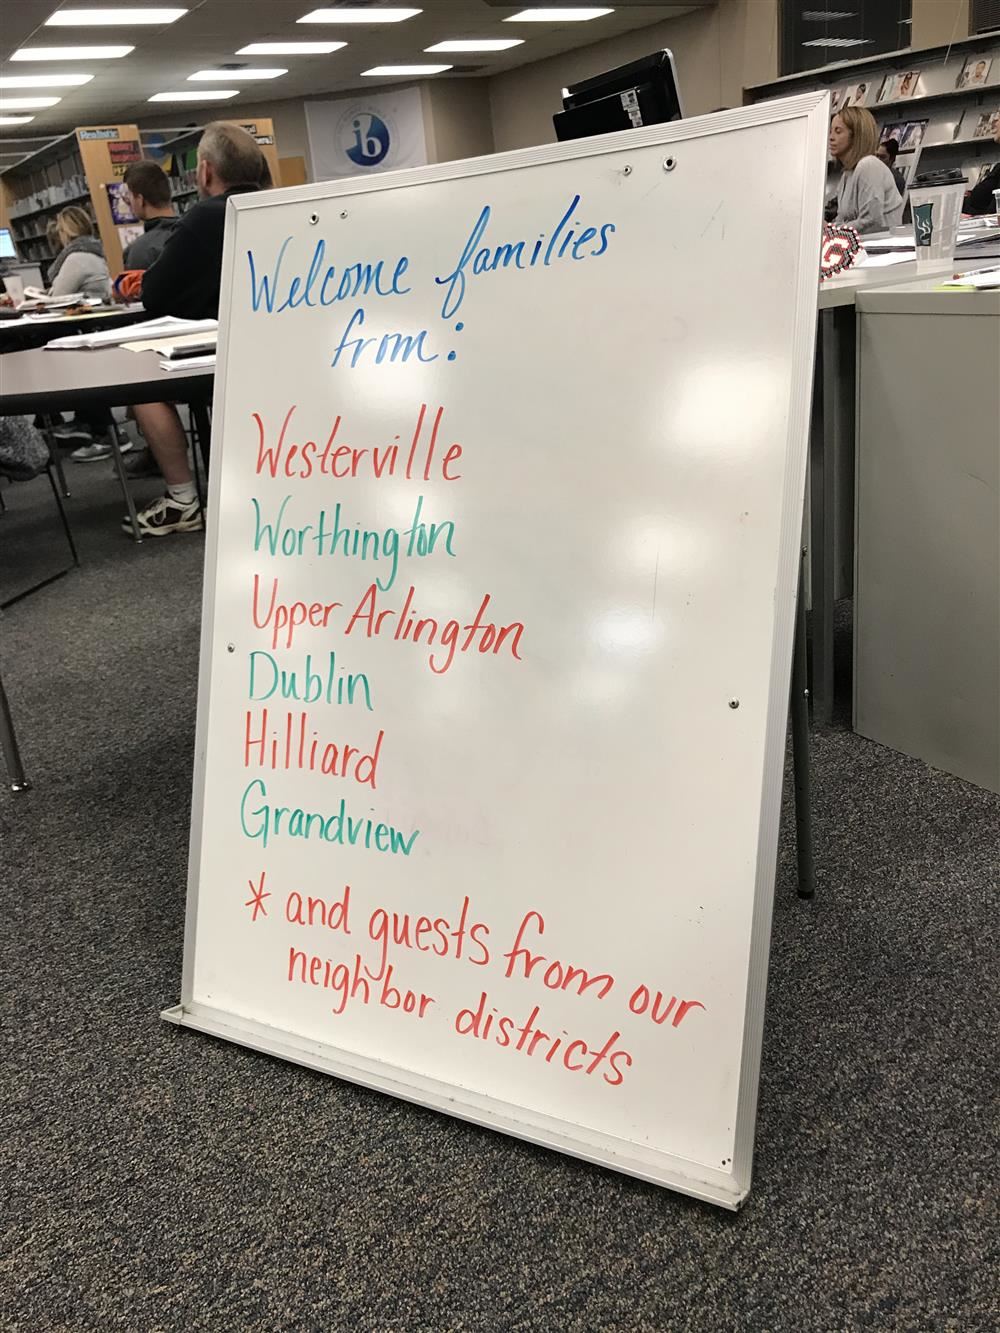 Welcome families
from:
Westerville
Worthington
Upper Arlington
Dublin
Hilliard
Grandview
* and guests from our
neighbor districts
ib
Realistic
G